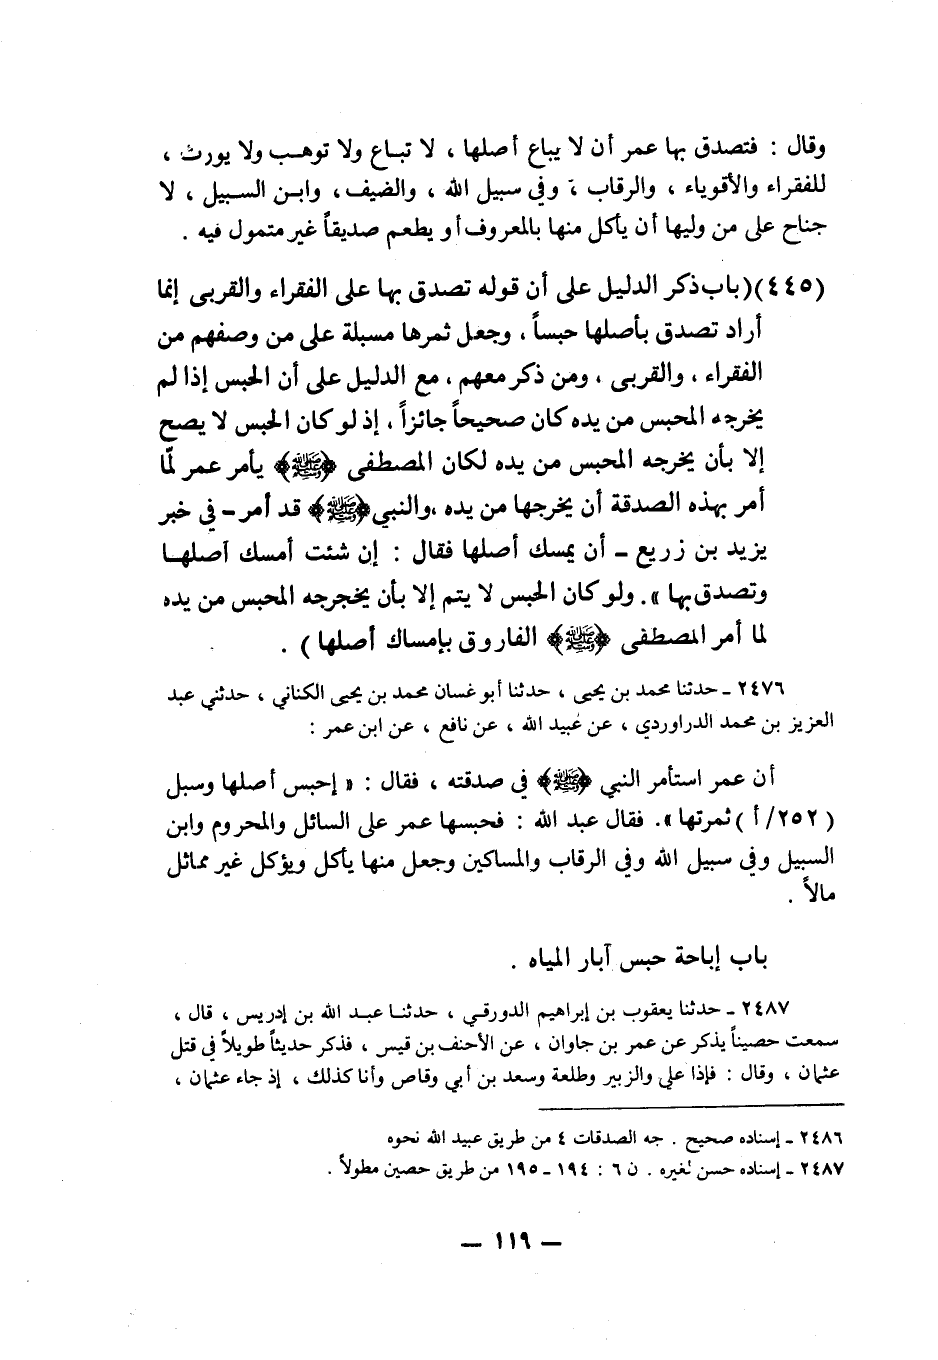 وقال : فتصدق بها عمر أن لا يباع أصلها ، لا تباع ولا توهب ولا يورث ،
للفقراء والأقوياء ، والرقاب ، وفي سبيل الله ، والضيف ، وابن السبيل ، لا
جناح على من وليها أن يأكل منها بالمعروف أو يطعم صديقاً غير متمول فيه .
(٤٤٥) (باب ذكر الدليل على أن قوله تصدق بها على الفقراء والقربى إنما
أراد تصدق بأصلها حبساً ، وجعل ثمرها مسبلة على من وصفهم من
الفقراء ، والقربى ، ومن ذكر معهم ، مع الدليل على أن الحبس إذا لم
يخرجه المحبس من يده كان صحيحاً جائزاً ، إذ لو كان الحبس لا يصح
إلا بأن يخرجه المحبس من يده لكان المصطفى ﴿ﷺ﴾ يأمر عمر لمّا
أمر بهذه الصدقة أن يخرجها من يده ، والنبي ﴿ﷺ﴾ قد أمر – في خبر
يزيد بن زريع – أن يمسك أصلها فقال : إن شئت أمسك آصلها
وتصدق بها » . ولو كان الحبس لا يتم إلا بأن يخجرجه المحبس من يده
لما أمر المصطفى ﴿ﷺ﴾ الفاروق بإمساك أصلها ) .
٢٤٧٦ ـ حدثنا محمد بن يحيى ، حدثنا أبو غسان محمد بن يحيى الكناني ، حدثني عبد
العزيز بن محمد الدراوردي ، عن عُبيد الله ، عن نافع ، عن ابن عمر :
أن عمر استأمر النبي ﴿ﷺ﴾ في صدقته ، فقال : « إحبس أصلها وسبل
(٢٥٢/ أ ) ثمرتها » . فقال عبد الله : فحبسها عمر على السائل والمحروم وابن
السبيل وفي سبيل الله وفي الرقاب والمساكين وجعل منها يأكل ويؤكل غير مماثل
مالاً .
باب إباحة حبس آبار المياه .
٢٤٨٧ ـ حدثنا يعقوب بن إبراهيم الدورقي ، حدثنا عبد الله بن إدريس ، قال ،
سمعت حصيناً يذكر عن عمر بن جاوان ، عن الأحنف بن قيس ، فذكر حديثاً طويلاً في قتل
عثمان ، وقال : فإذا علي والزبير وطلعة وسعد بن أبي وقاص وأنا كذلك ، إذ جاء عثمان ،
٢٤٨٦ ـ إسناده صحيح . جه الصدقات ٤ من طريق عبيد الله نحوه
٢٤٨٧ ـ إسناده حسن لغيره . ن ٦ : ١٩٤ ـ ١٩٥ من طريق حصين مطولاً .
— ١١٩ —